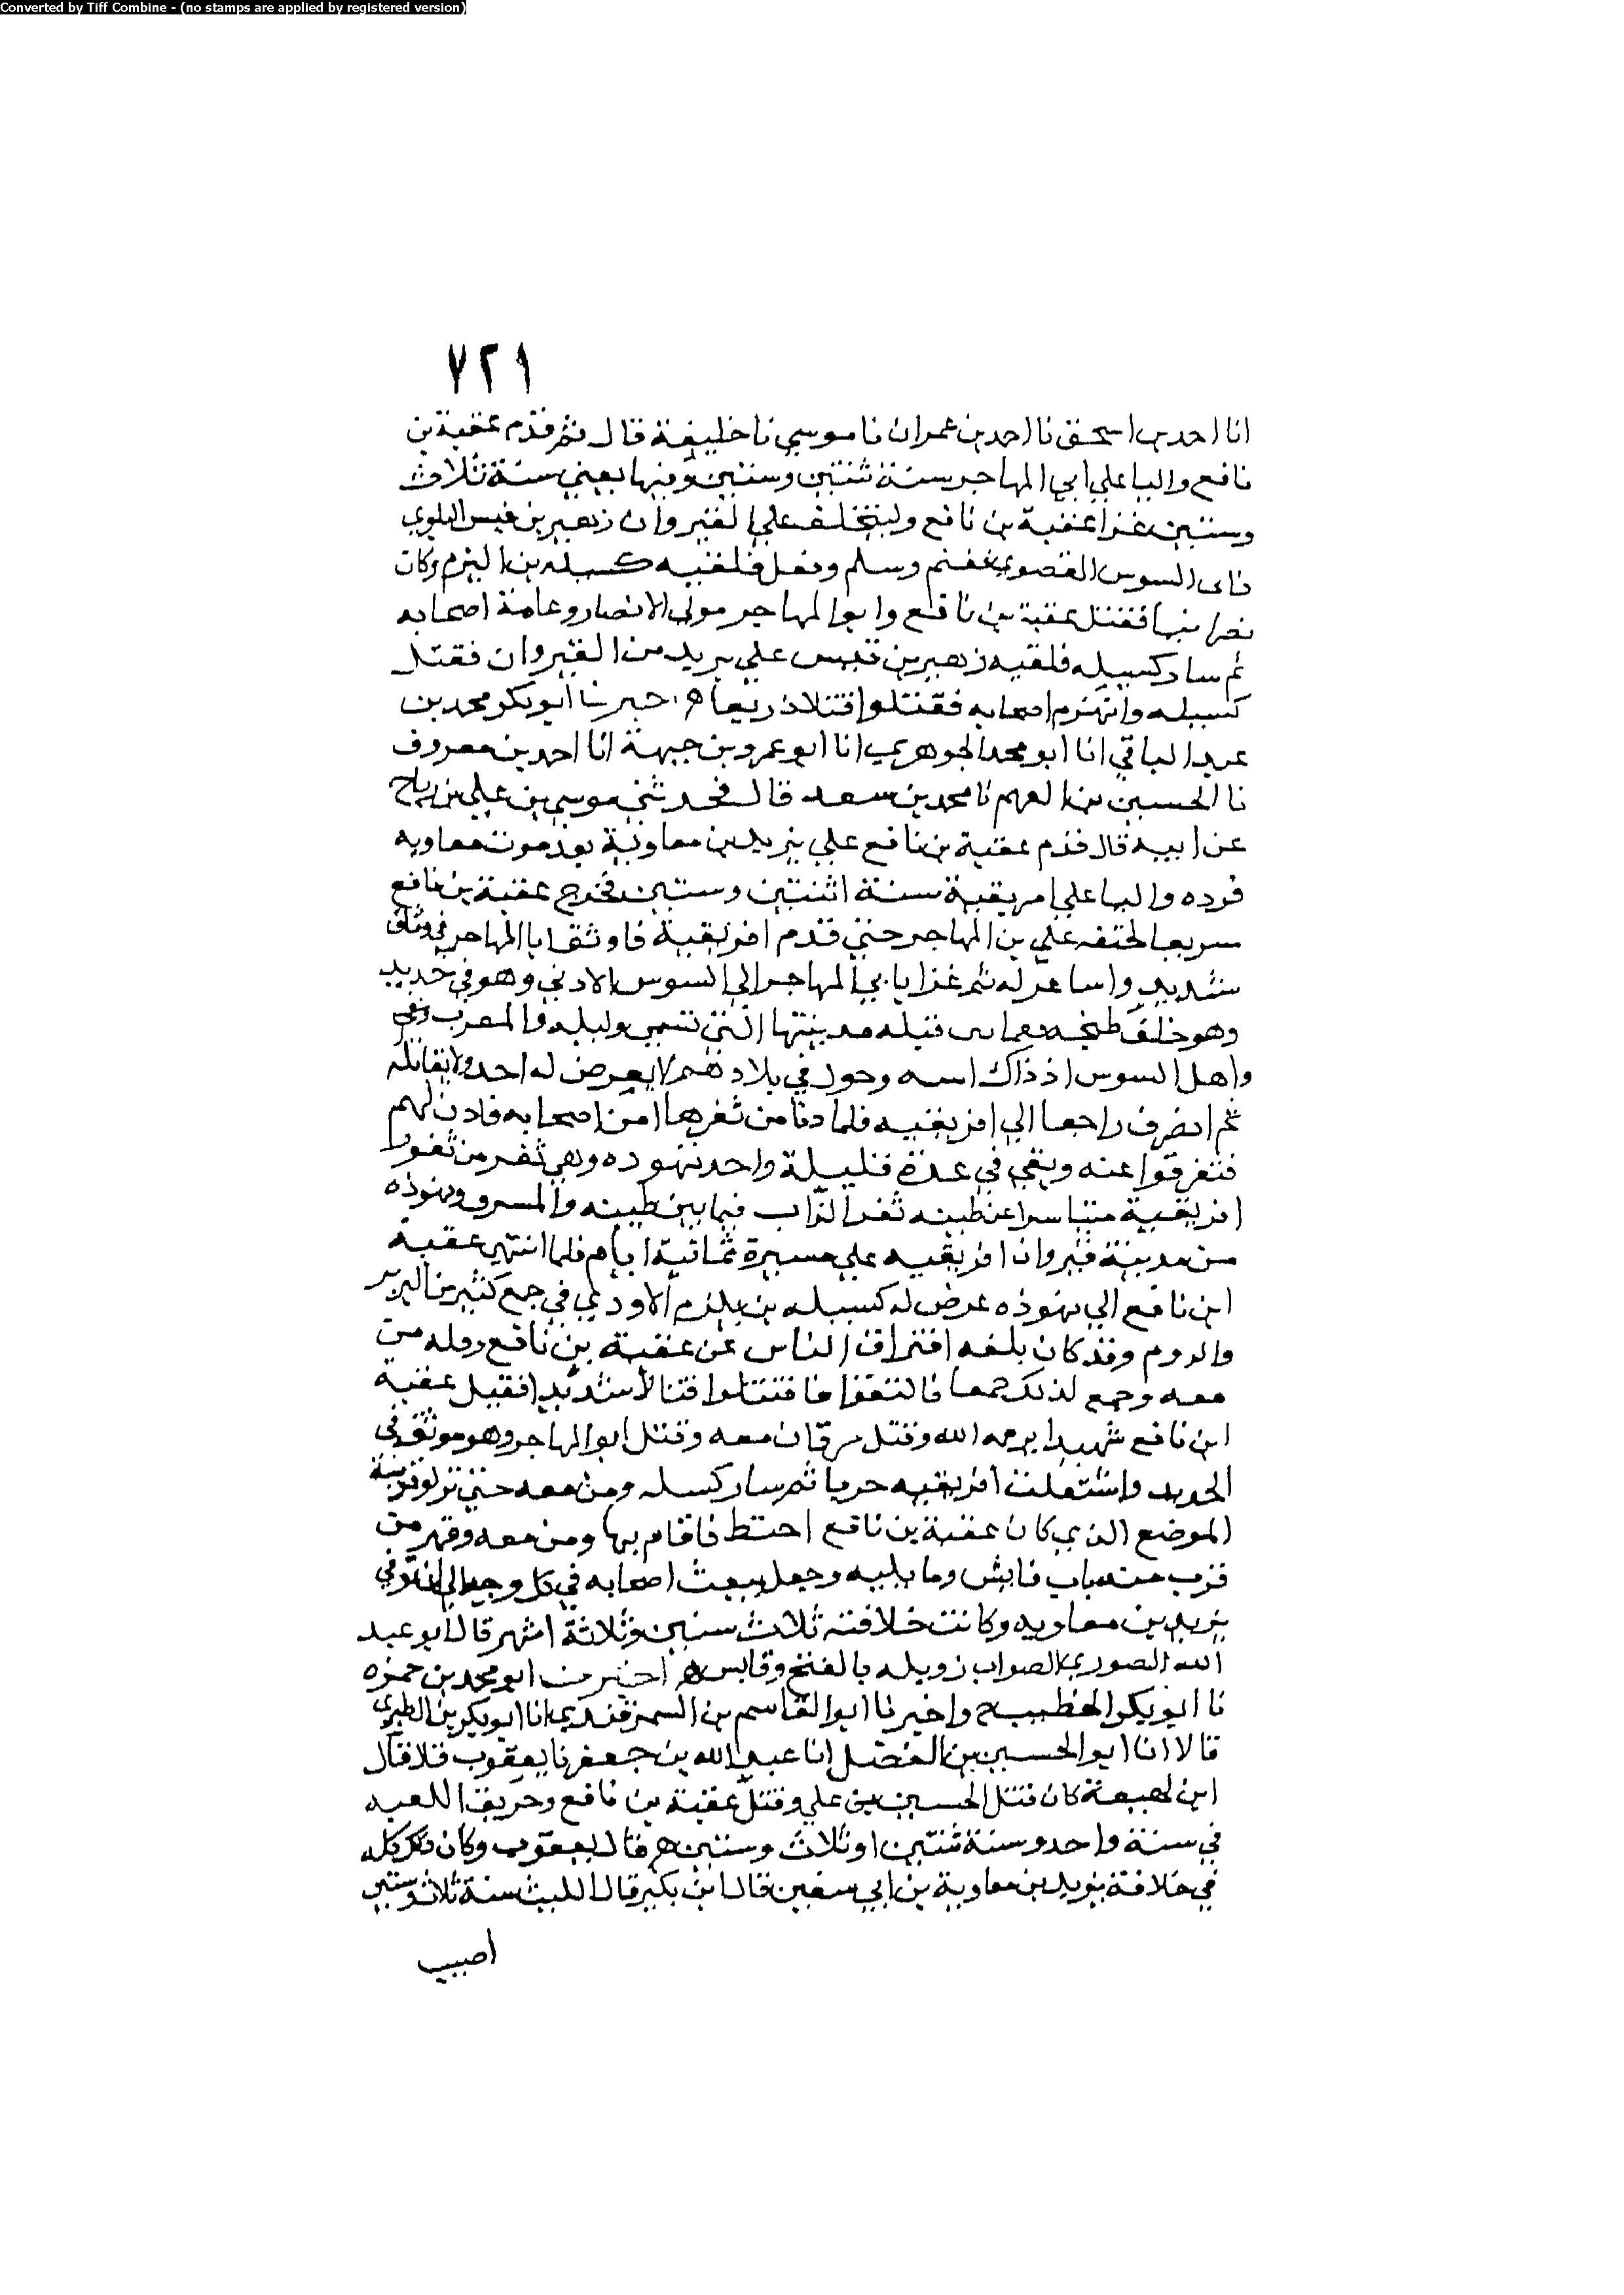 Converted by Tiff Combine - (no stamps are applied by registered version)
٧٢١
انا احمد بن اسحق نا احمد بن عمران نا موسي نا خليفة قال ثم قدم عقبة بن
نافع واليا علي ابي المهاجر سنة ثنتين وستين وفيها يعني سنة ثلاث
وستين غزا عقبة بن نافع علي القيروان زهير بن قيس البلوي
السوس القصوي فغنم وسلم وقفل فلقيه كسيله بن وكان
نصرانيا فقتل عقبة بن نافع وابو المهاجر مولي الانصار وعامة اصحابه
ثم سار كسيله فلقيه زهير بن قيس علي بريد من القيروان فقتل
كسيله وانهزم اصحابه فقتلوا قتلا ذريعا اخبرنا ابو بكر محمد بن
عبد الباقي انا ابو محمد الجوهري انا ابو عمر بن انا احمد بن معروف
نا الحسين بن الفهم نا محمد بن سعد قال فحدثني موسي بن علي بن رباح
عن ابيه قال قدم عقبة بن نافع علي يزيد بن معاوية بعد موت معاويه
فرده واليا علي افريقية سنة اثنتين وستين فخرج عقبة بن نافع
سريعا لحنقه علي بن المهاجر حتي قدم افريقية فاوثق ابا المهاجر في وثاق
شديد واسا عزله ثم غزا بابي المهاجر الي السوس الادني وهو في حديد
وهو خلف طنجه مدينتها التي تسمي وليله والمغرب
واهل السوس اذ ذاك في بلادهم لا يعرض له احد ولا يقاتله
ثم انصرف راجعا الي افريقيه فلما دنا من ثغرها امن اصحابه فاذن لهم
فتفرقوا عنه وبقي في عدة قليلة واحد تهوده وهي ثغر من ثغور
افريقية متياسرا عن طبنه ثغر الزاب فيما بين طبنه والمسرق وتهوذه
من مدينة قيروان افريقيه علي مسيرة ثمانية ايام فلما انتهي عقبة
ابن نافع الي تهوذه عرض له كسيله بن يلزم الاودي في جمع كثير من البربر
والروم وقد كان بلغه افتراق الناس عن عقبة بن نافع وقله من
معه وجمع لذلك جمعا فالتقوا فاقتتلوا قتالا شديدا فقتل عقبة
ابن نافع شهيدا يرحمه الله وقتل من كان معه وقتل ابو المهاجر وهو موثق في
الحديد واشتعلت افريقيه حربا ثم سار كسله ومن معه حتي نزلوا
الموضع الذي كان عقبة بن نافع اختط فاقام بها ومن معه وقهر من
قرب منه باب قابس وما يليه وجعل يبعث اصحابه في كل وجه الي ان توفي
يزيد بن معاويه وكانت خلافته ثلاث سنين وثلاثة اشهر قال ابو عبد
الله الصوري الصواب زويله بالفتح وقابس اخبرنا ابو محمد بن حمزه
نا ابو بكر الخطيب ح واخبرنا ابو القاسم بن السمرقندي انا ابو بكر بن الطبري
قالا انا ابو الحسين بن الفضل انا عبد الله بن جعفر نا يعقوب قال قال
ابن لهيعة كان قتل الحسين بن علي وقتل عقبة بن نافع وحريق الكعبه
في سنة واحد وسنة ثنتين او ثلاث وستين قال يعقوب وكان ذلك كله
في خلافة يزيد بن معاوية بن ابي سفين قال ابن بكير قال الليث سنة ثلاث وستين
اصيب